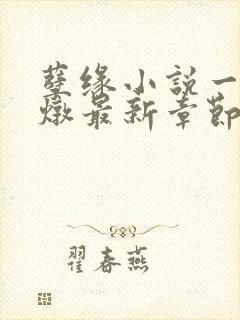 孽缘小説一
燉最新章節
翟春燕